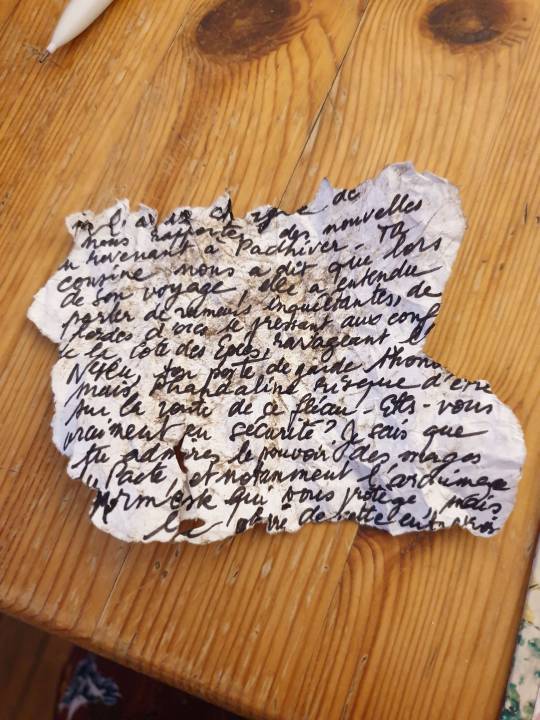 de
nous rapporte des nouvelles
revenant à Padhiver - Ta
cousine nous a dit que lors
de son voyage, elle a entendu
parler de rumeurs inquiétantes, de
hordes d'orcs se pressant aux conf
la côte des Epées, ravageant
ton poste de garde
mais Phandaline risque d'être
sur la route de ce fléau - Etes-vous
vraiment en sécurité? Je sais que
tu admires le pouvoir des mages
Pacte, et notamment l'archimage
qui vous protège, mais
de cette